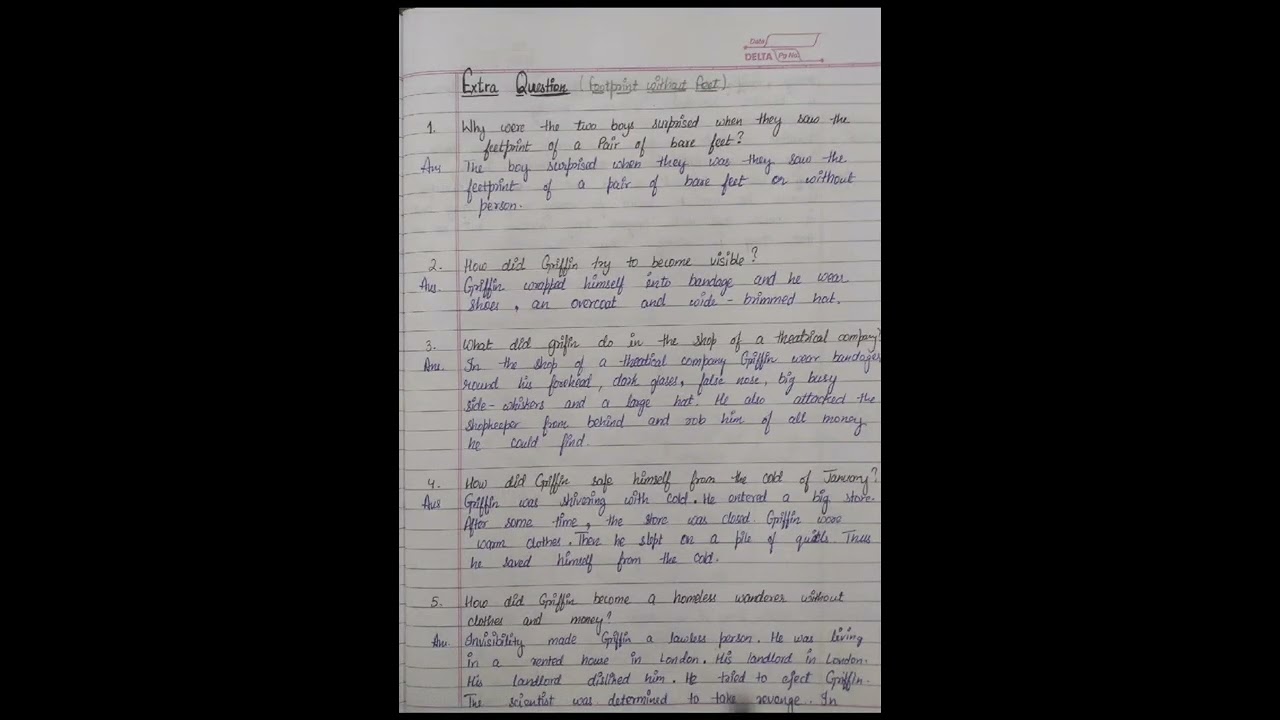 Date
DELTA Pg No.
Extra Question (Footprint without Feet)
1. Why were the two boys surprised when they saw the
feetprint of a Pair of bare feet?
Ans The boy surprised when they was they saw the
feetprint of a pair of bare feet or without
person.
2. How did Griffin try to become visible?
Ans. Griffin wrapped himself into bandage and he wear
shoes, an overcoat and wide-brimmed hat.
3. What did grifin do in the shop of a theatrical company?
Ans. In the shop of a theatical company Griffin wear bandages
round his forehead, dark glases, false nose, big busy
side-whiskers and a large hat. He also attacked the
shopkeeper from behind and rob him of all money
he could find.
4. How did Griffin safe himself from the cold of January?
Ans Griffin was shivering with cold. He entered a big store.
After some time, the store was closed. Griffin wore
warm clothes. Then he slept on a pile of quilts. Thus
he saved himself from the cold.
5. How did Griffin become a homeless wanderer without
clothes and money?
Ans. Invisibility made Griffin a lawless person. He was living
in a rented house in London. His landlord in London.
His landlord disliked him. He tried to eject Griffin.
The scientist was determined to take revenge. In